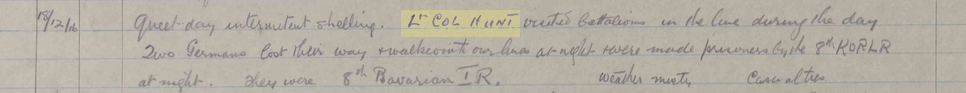 18/12/16 Quiet day intermitent shelling. Lt COL HUNT visited Battalions in the line during the day
Two Germans lost their way & walked into our lines at night & were made prisoners by the 8th KORLR
at night. They were 8th Bavarian I R. Weather misty Casualties